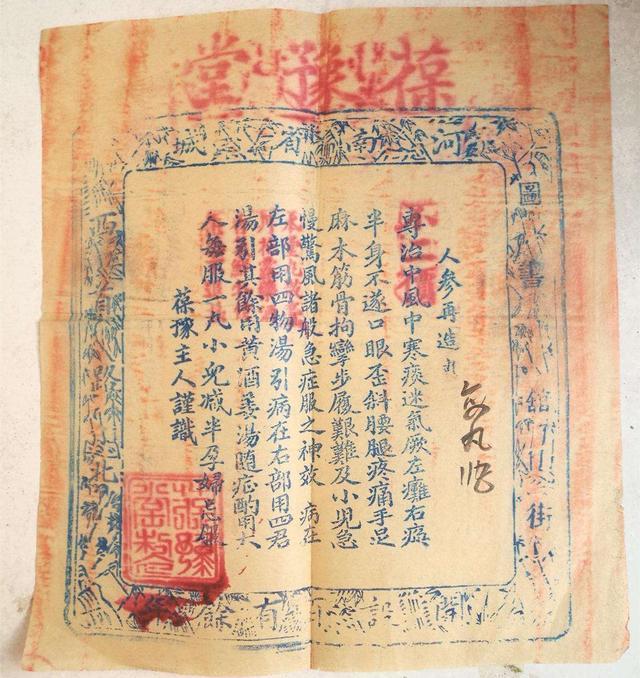 葆豫堂
河南省城
圖書館
街
人參再造丸
專治中風中寒痰迷氣厥左癱右瘓
半身不遂口眼歪斜腰腿疼痛手足
麻木筋骨拘攣步履艱難及小兒急
慢驚風諸般急症服之神效 病在
左部用四物湯引病在右部用四君
湯引其餘用黃酒姜湯隨症酌用大
人每服一丸小兒減半孕婦忌服
葆豫主人謹識
每丸
開設百有餘